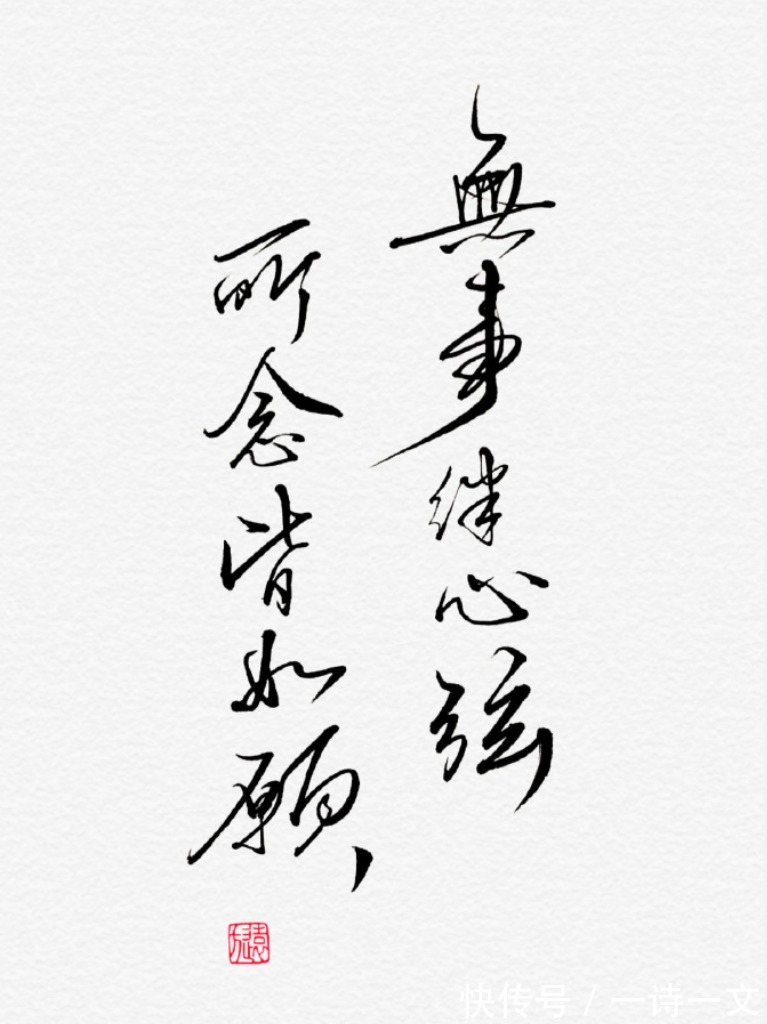 無事絆心弦
所念皆如願
快传号 / 一诗一文